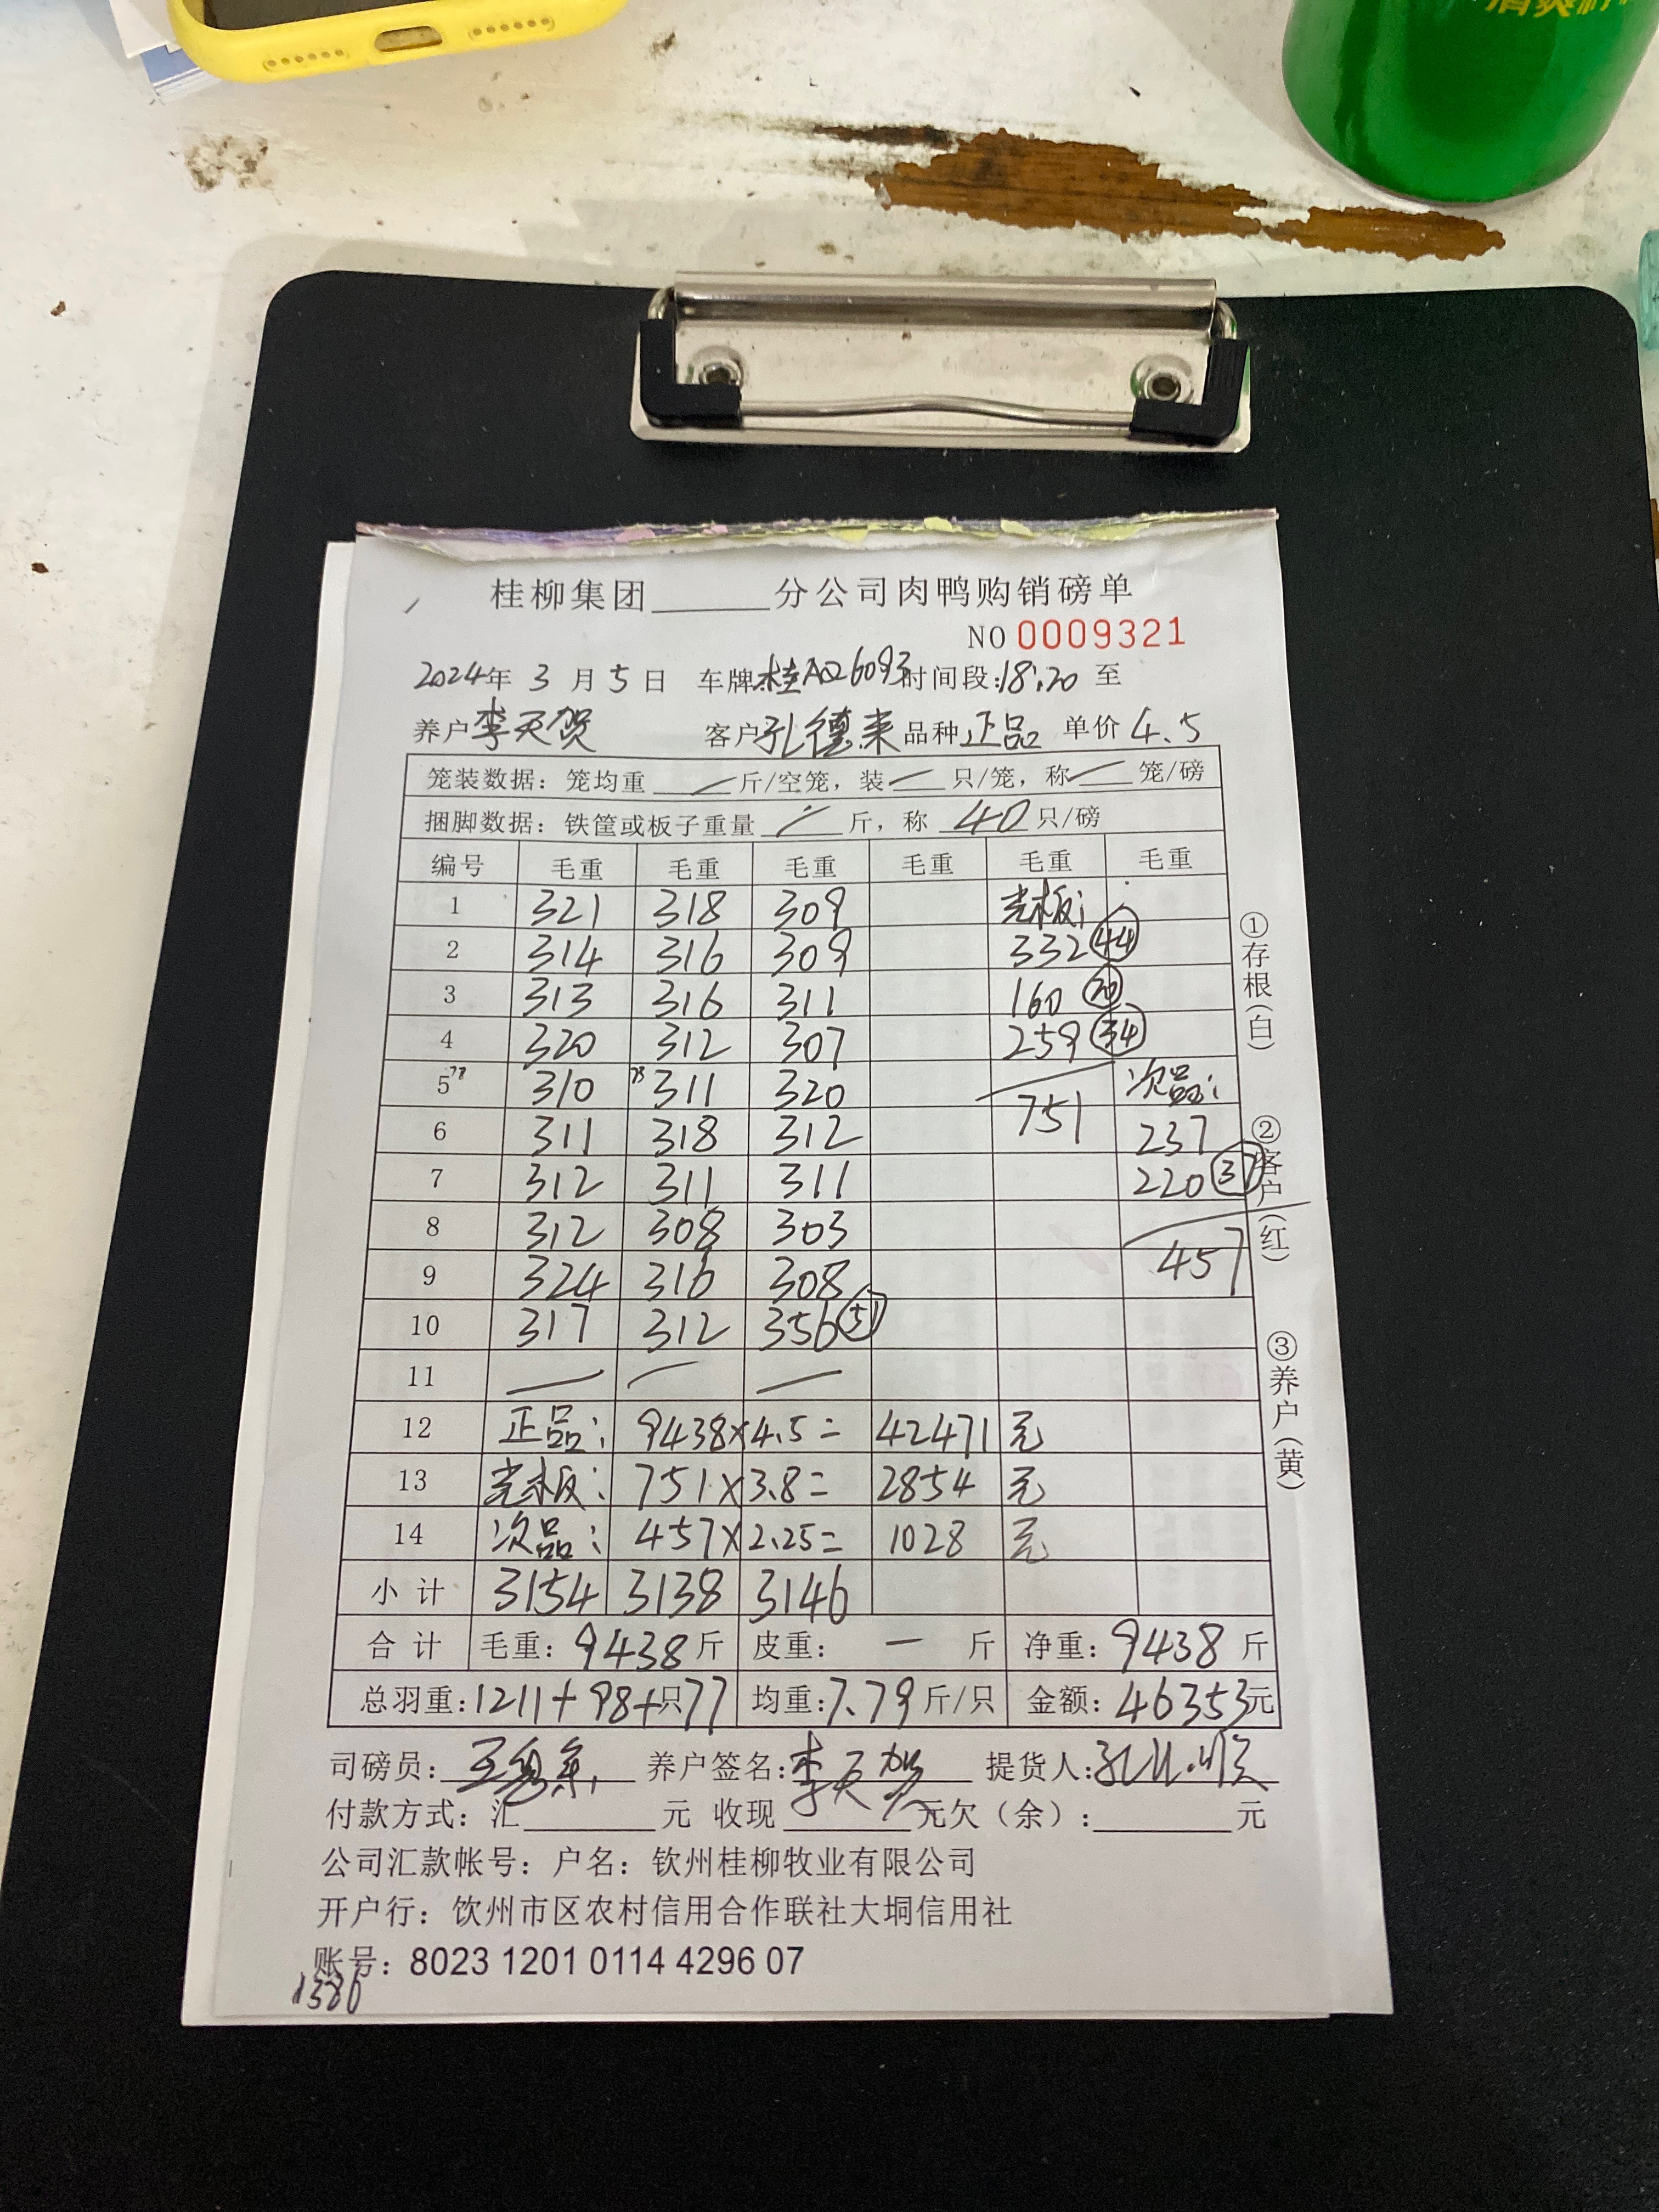 清爽
桂柳集团______分公司肉鸭购销磅单
NO 0009321
2024年 3 月 5 日 车牌桂AQ26093时间段:18:20 至
养户李天贺 客户孔德来品种正品 单价 4.5
笼装数据：笼均重 — 斤/空笼，装 — 只/笼，称 — 笼/磅
捆脚数据：铁筐或板子重量 — 斤，称 40 只/磅
编号 毛重 毛重 毛重 毛重 毛重 毛重
1 321 318 309 光板:
2 314 316 309 332 44
3 313 316 311 160 20
4 320 312 307 259 34
5 78 310 78 311 320 751 次品:
6 311 318 312 237
7 312 311 311 220
8 312 308 303 457
9 324 316 308
10 317 312 356 51
11 — — —
12 正品: 9438×4.5= 42471 元
13 光板: 751×3.8= 2854 元
14 次品: 457×2.25= 1028 元
小计 3154 3138 3146
合计 毛重: 9438 斤 皮重: — 斤 净重: 9438 斤
总羽重:1211+98+只77 均重:7.79斤/只 金额: 46353元
司磅员: 养户签名:李天贺 提货人:
付款方式：汇______元 收现______元欠（余）:______元
公司汇款帐号：户名：钦州桂柳牧业有限公司
开户行：饮州市区农村信用合作联社大垌信用社
账号：8023 1201 0114 4296 07
1386
①存根（白）
②客户（红）
③养户（黄）